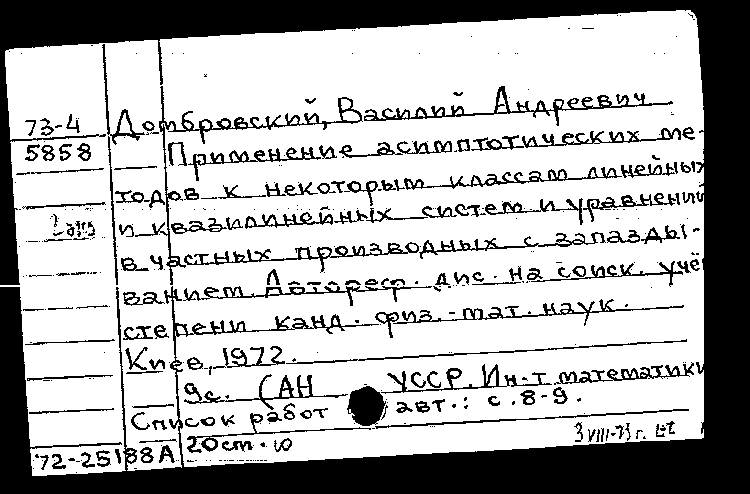 73-4 Домбровский, Василий Андреевич
5858 Применение асимптотических ме-
тодов к некоторым классам линейных
и квазилинейных систем и уравнений
в частных производных с запазды-
ванием. Автореф. дис. на соиск. учё
степени канд. физ.-мат. наук.
Киев, 1972.
9с. (АН УССР. Ин-т математики
Список работ авт.: с.8-9.
20 cm. ю
72-25188А 3 VIII-73 г.